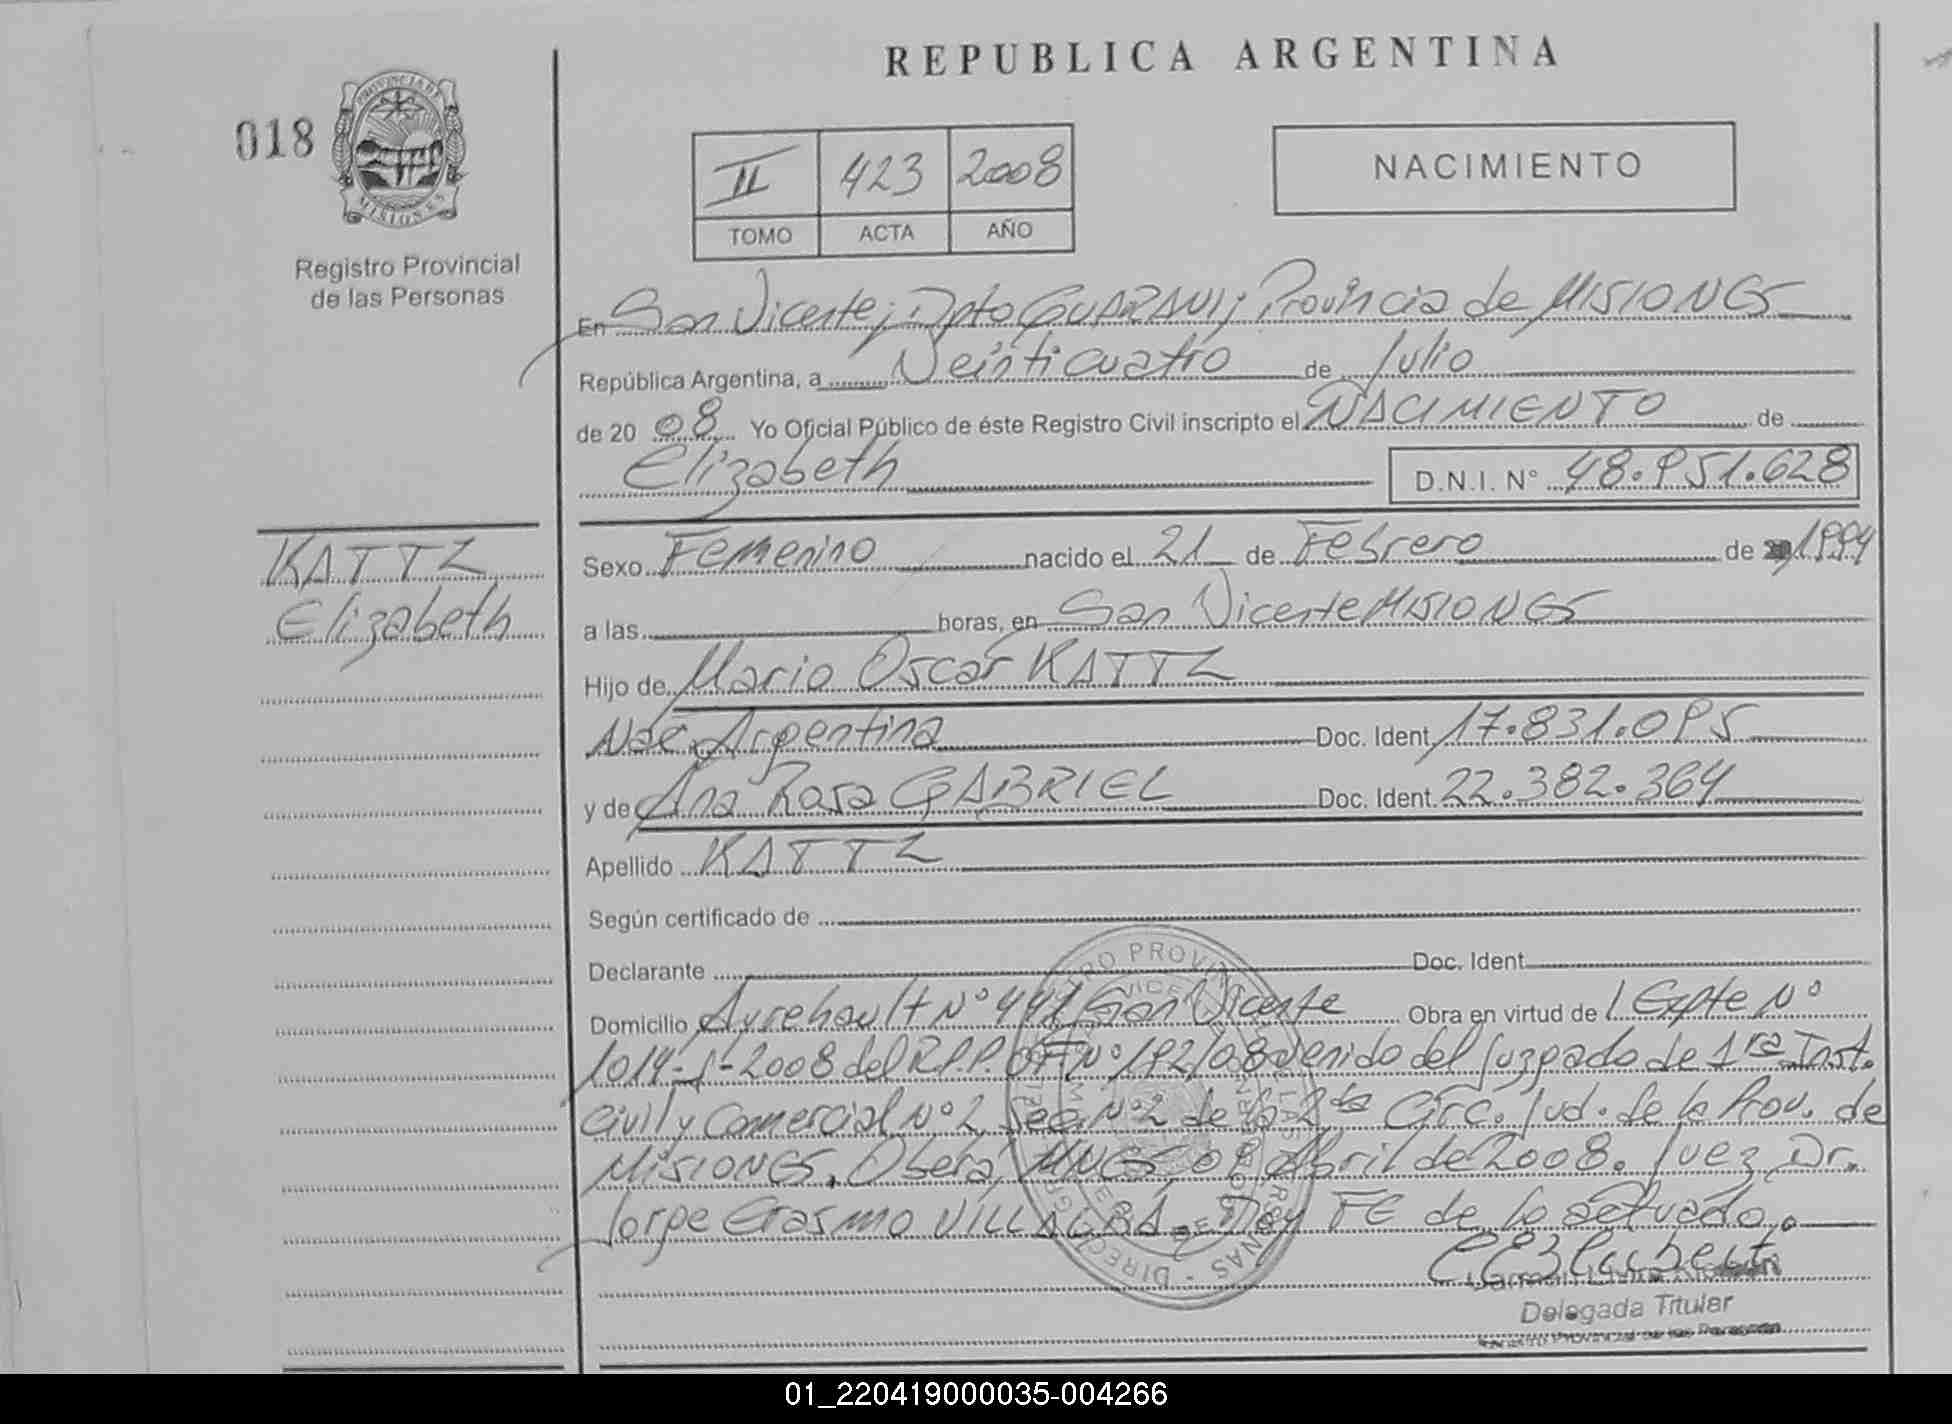 REPUBLICA ARGENTINA
018
PROVINCIA DE
MISIONES
Registro Provincial
de las Personas
II 423 2008
TOMO ACTA AÑO
NACIMIENTO
En San Vicente; Dpto GUARANI; Provincia de MISIONES
República Argentina, a Veinticuatro de Julio
de 2008 Yo Oficial Público de éste Registro Civil inscripto el NACIMIENTO de
Elizabeth D.N.I. Nº 48.951.628
KATTZ
Elizabeth
Sexo Femenino nacido el 21 de Febrero de 1994
a las horas, en San Vicente MISIONES
Hijo de Mario Oscar KATTZ
Nac. Argentina Doc. Ident. 17.831.095
y de Ana Rosa GABRIEL Doc. Ident. 22.382.364
Apellido KATTZ
Según certificado de
Declarante Doc. Ident.
Domicilio Nº San Vicente Obra en virtud de Expte Nº
1014-J-2008 del R.P.P. OF Nº 192/08 venido del Juzgado de 1ra Inst.
Civil y Comercial Nº 2, Sec. Nº 2 de la 2da Circ. Jud. de la Prov. de
MISIONES. Oberá, MNES 09 Abril de 2008. Juez Dr.
Jorge Erasmo VILLAGRA. Doy FE de lo actuado.
Delegada Titular
01_220419000035-004266